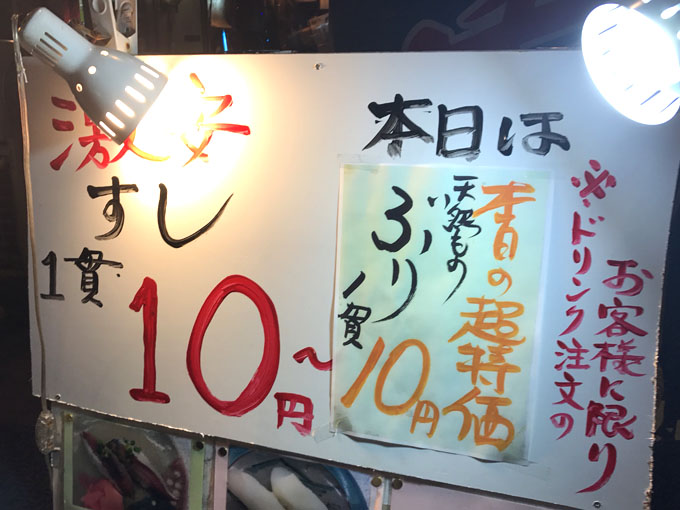 激安
すし
1貫
10円〜
本日は
本日の超特価
天然もの
ぶり
1貫
10円
※ドリンク注文の
お客様に限り